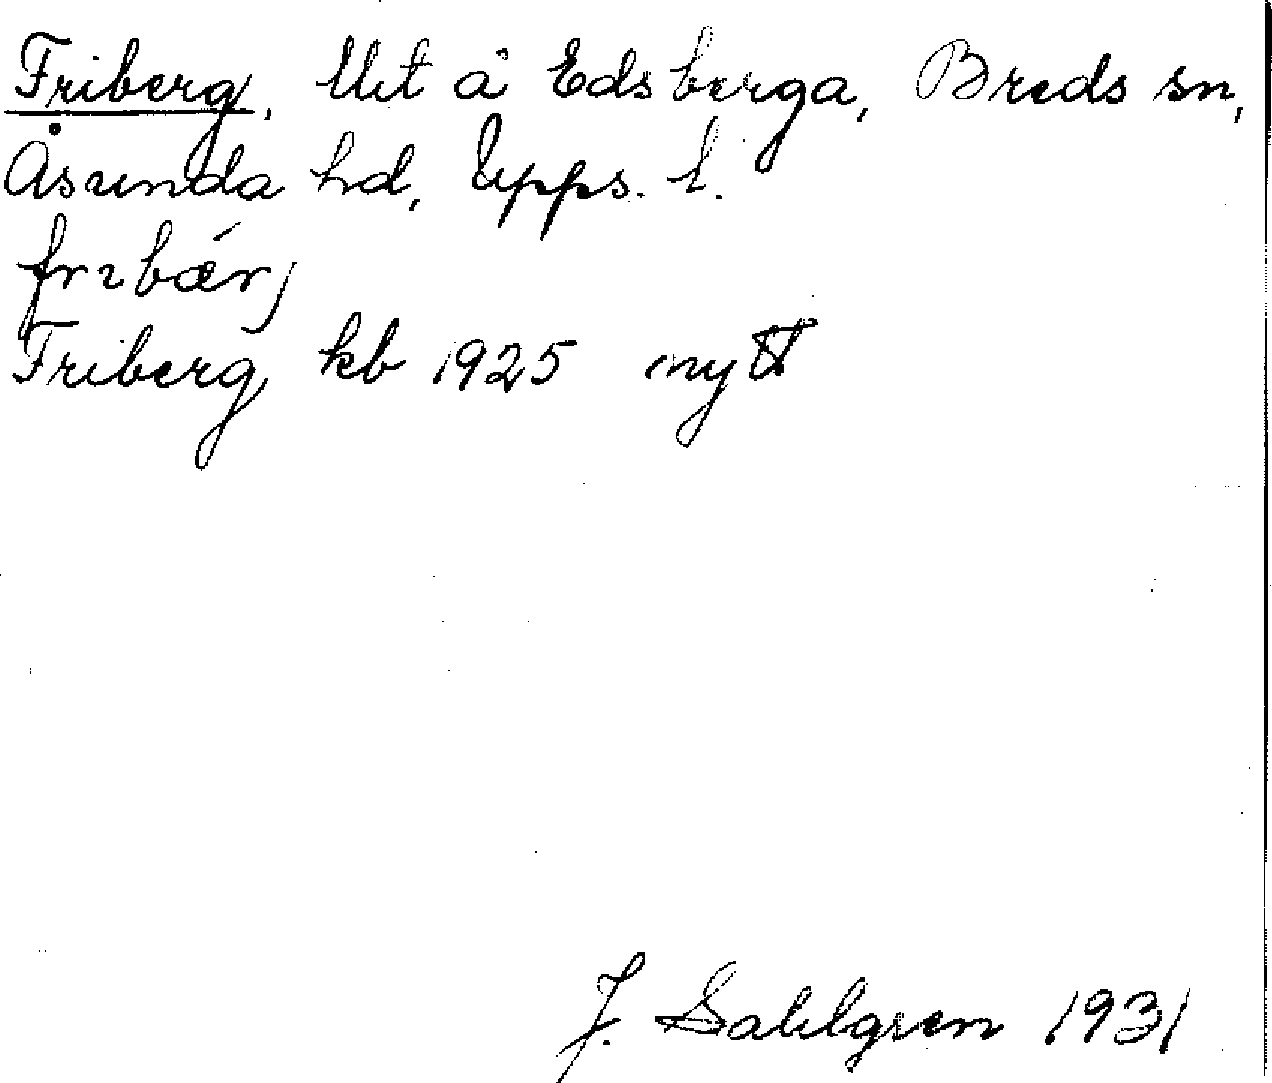 Friberg, Utt å Edsberga, Breds sn,
Åsunda hd, Upps. l.
frɩbǽrj
Friberg kb 1925 nytt
J. Sahlgren 1931